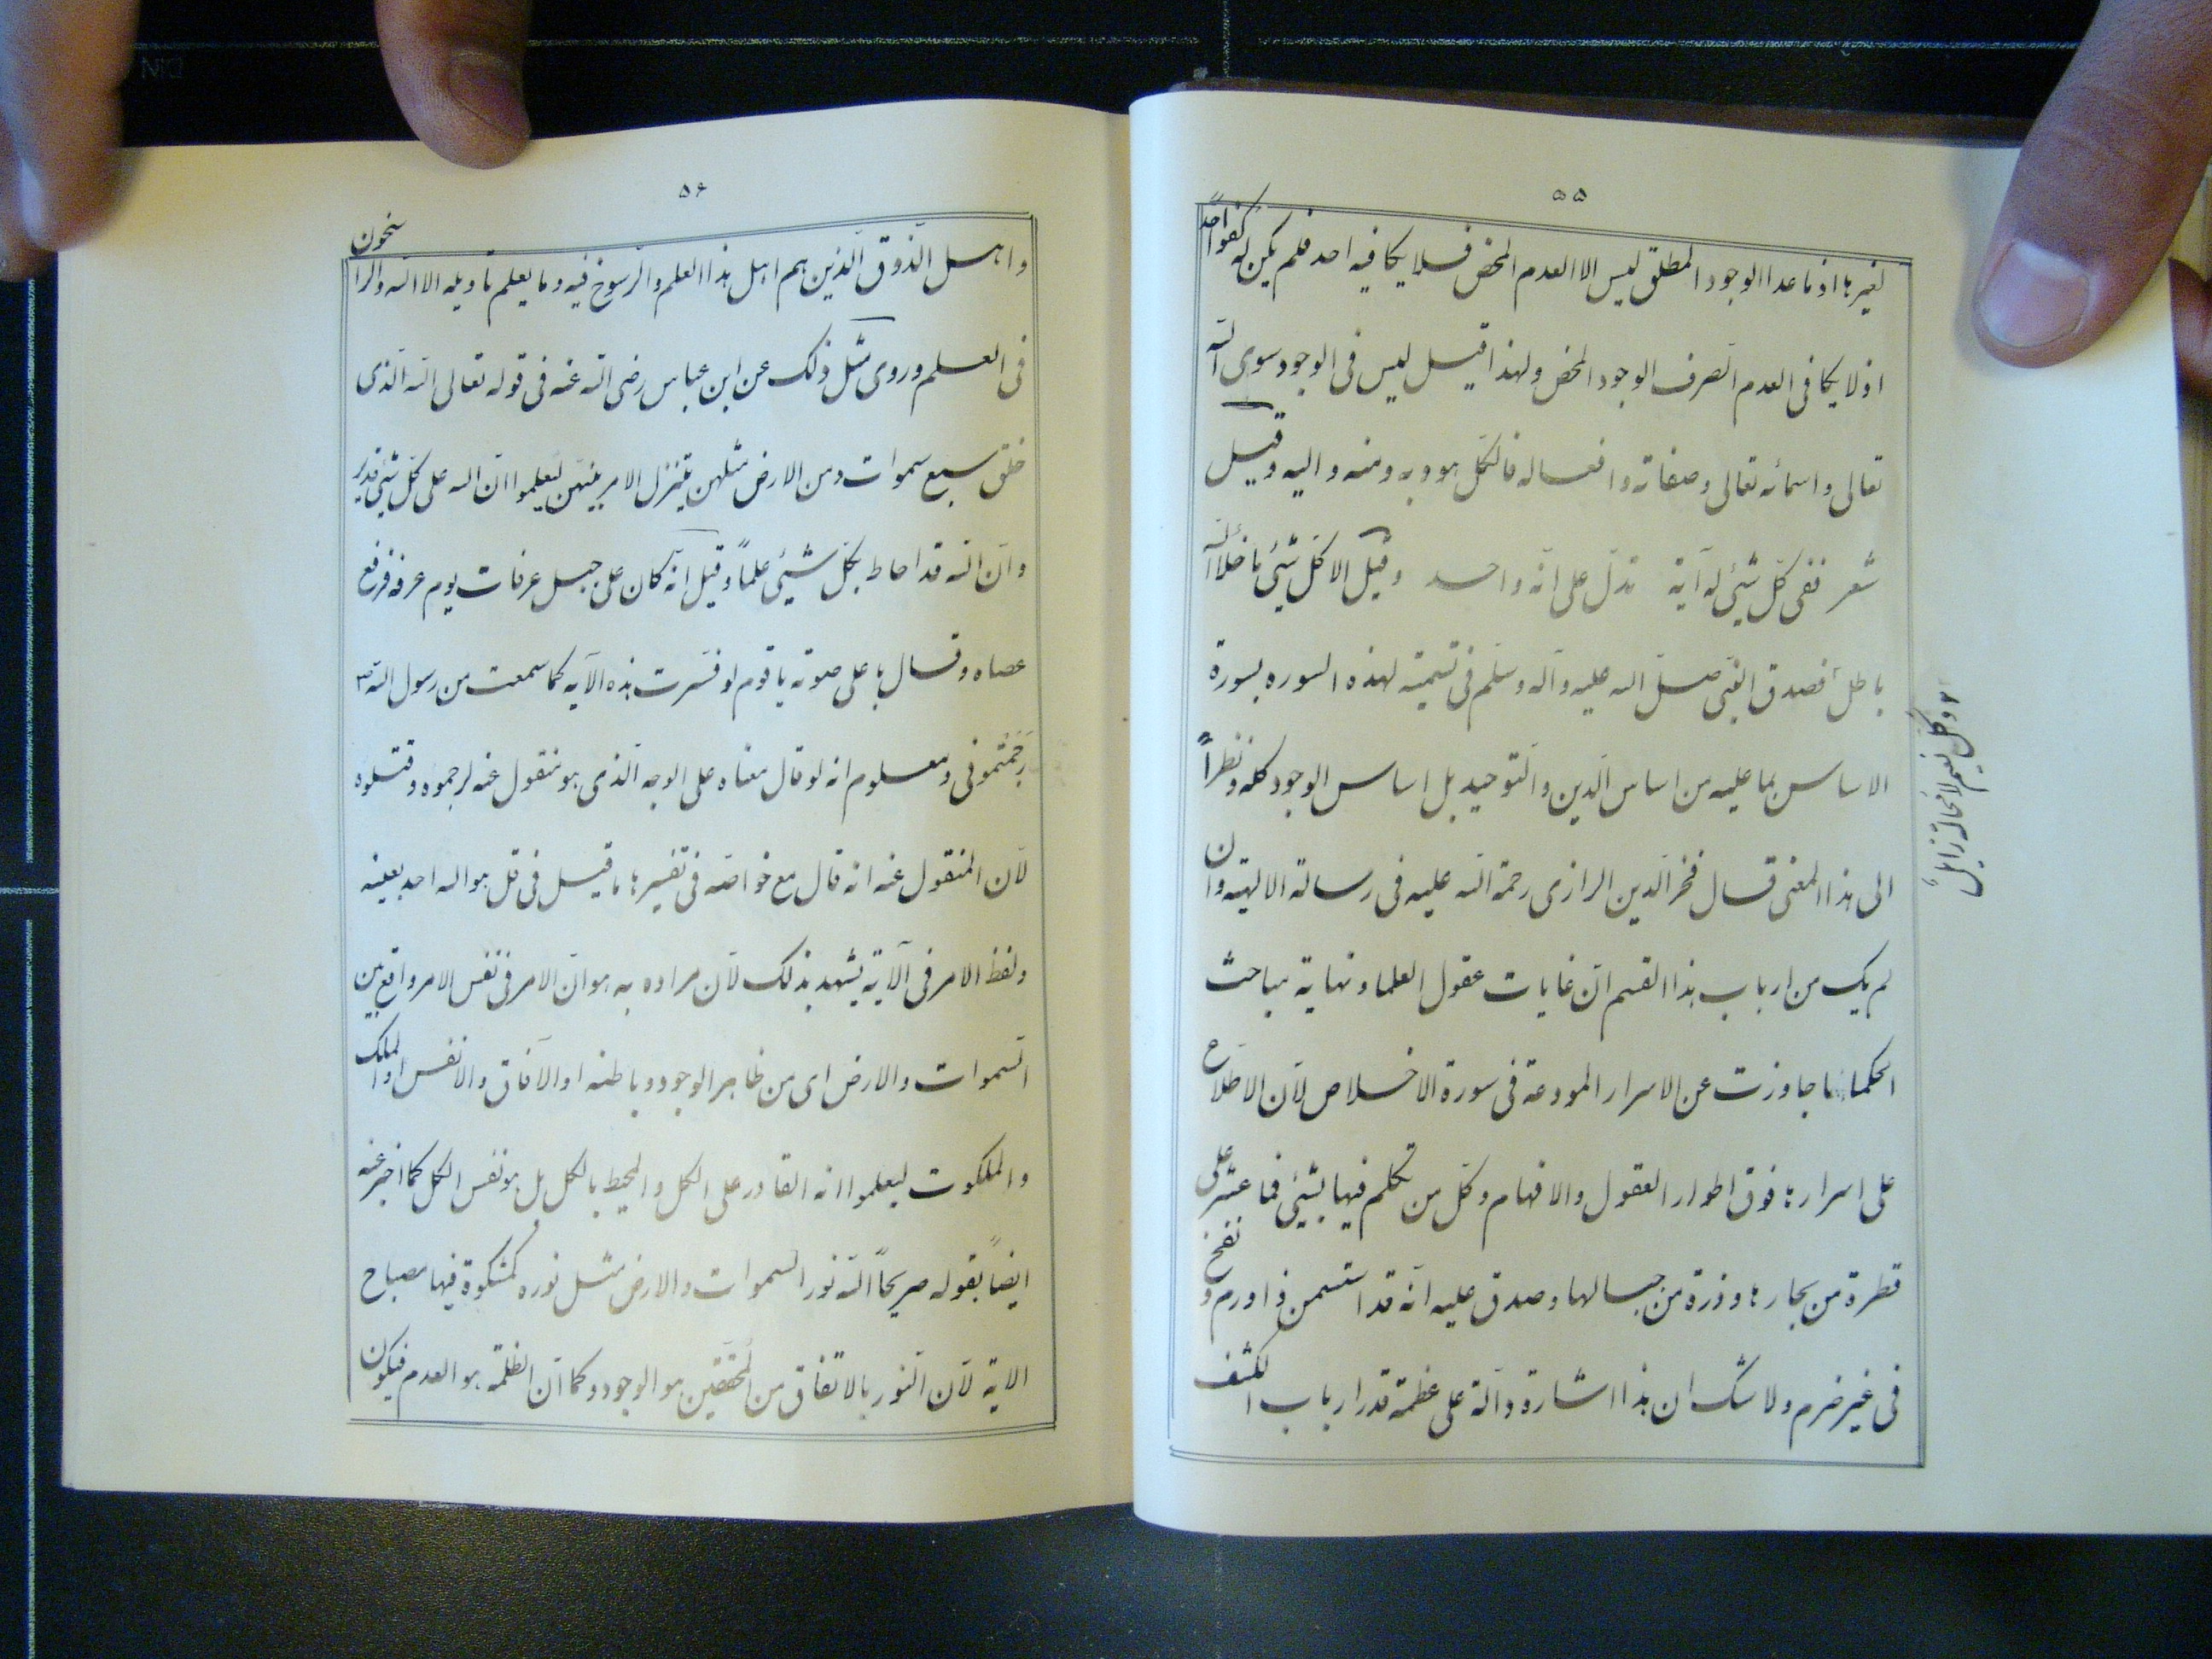 ۵۵
لغیرها اذ ما عدا الوجود المطلق لیس الا العدم المحض فلا یکافیه احد فلم یکن له کفواً احد
اذ لا یکافی العدم الصّرف الوجود المحض ولهذا قیل لیس فی الوجود سوی الله
تعالی و اسمائه تعالی و صفاته و افعاله فالکلّ هو و به و منه و الیه و قیل
شعر ففی کلّ شیئی له آیة تدلّ علی انّه واحد و قیل الا کلّ شیئی ما خلا الله
باطلٌ فصدق النّبی صلّی الله علیه وآله وسلّم فی تسمیته لهذه السوره بسورة
الاساس بما علیه من اساس الدین و التوحید بل اساس الوجود کله و نظراً
الی هذا المعنی قال فخر الدین الرازی رحمة الله علیه فی رسالة الالهیة وان
لم یک من ارباب هذا القسم انّ غایات عقول العلما و نهایة مباحث
الحکما ما جاوزت عن الاسرار المودعة فی سورة الاخلاص لانّ الاطلاع
علی اسرارها فوق اطوار العقول والافهام و کلّ من تکلم فیها بشیئی فما عثر علی
قطرة من بحارها و ذرة من جبالها و صدق علیه انّه قد استسمن ذا ورم و نفخ
فی غیر ضرم ولا شک ان هذا اشارة دالّة علی عظمة قدر ارباب الکشف
وکل نعیم لا محالة زایل
۵۶
و اهل الذّوق الّذین هم اهل هذا العلم والرّسوخ فیه و ما یعلم تاویله الا الله والراسخون
فی العلم و روی مثل ذلک عن ابن عباس رضی الله عنه فی قوله تعالی الله الّذی
خلق سبع سموات و من الارض مثلهن یتنزل الامر بینهنّ لتعلموا انّ الله علی کلّ شیئی قدیر
و انّ الله قد احاط بکلّ شیئی علماً و قیل انّه کان علی جبل عرفات یوم عرفه فرفع
عصاه و قال باعلی صوته یا قوم لو فسّرت هذه الآیه کما سمعت من رسول الله ص
رجمتمونی و معلوم انه لو قال معناه علی الوجه الّذی هو منقول عنه لرجموه و قتلوه
لانّ المنقول عنه انه قال مع خواصّه فی تفسیرها ما قیل فی قل هو الله احد بعینه
و لفظ الامر فی الآیة یشهد بذلک لانّ مراده به هو انّ الامر فی نفس الامر واقع بین
السّموات و الارض ای من ظاهر الوجود و باطنه او الآفاق والانفس او الملک
والملکوت لیعلموا انه القادر علی الکل و المحیط بالکل بل هو نفس الکل کما اخبر عنه
ایضاً بقوله صریحاً الله نور السّموات والارض مثل نوره کمشکوة فیها مصباح
الایة لانّ النّور بالاتفاق من المحقّقین هو الوجود و کما انّ الظلمة هو العدم فیکون